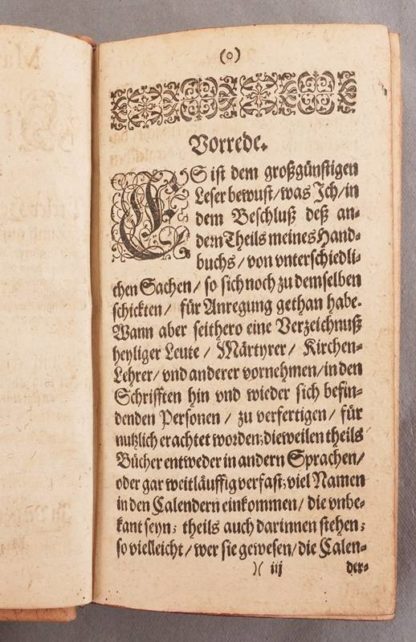 (o)
Vorrede.
ES ist dem großgünstigen
Leser bewust/ was Ich/ in
dem Beschluß deß an-
dern Theils meines Hand-
buchs/ von vnterschiedli-
chen Sachen/ so sich noch zu demselben
schickten/ für Anregung gethan habe.
Wann aber seithero eine Verzeichnuß
heyliger Leute/ Märtyrer/ Kirchen-
Lehrer/ vnd anderer vornehmen/ in den
Schrifften hin vnd wieder sich befin-
denden Personen/ zu verfertigen/ für
nutzlich erachtet worden; dieweilen theils
Bücher entweder in andern Sprachen/
oder gar weitläuffig verfast; viel Namen
in den Calendern einkommen/ die vnbe-
kant seyn; theils auch darinnen stehen;
so vielleicht/ wer sie gewesen/ die Calen-
)( iij der-